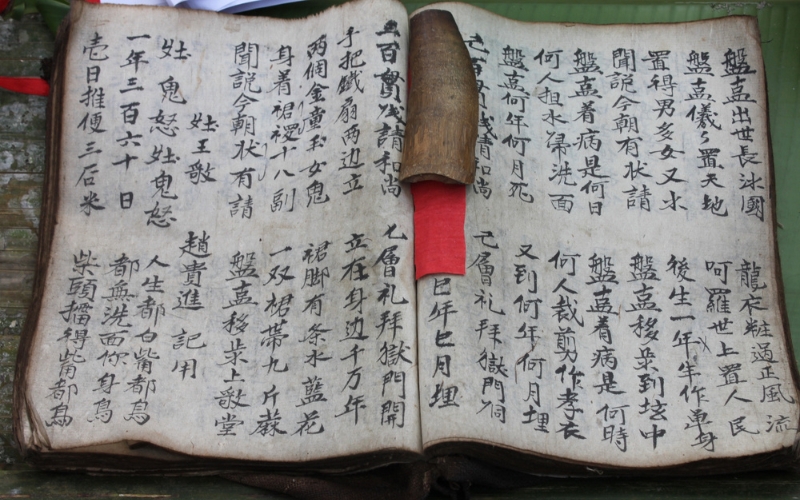 盤出世長國 龍衣粧過正風流
盤儀置天地 呵羅世上置人民
置得男多女又少 後生一年半作单身
聞説今朝有状請 盤移来到垓中
盤着病是何日 盤着病是何時
何人担水洗面 何人裁剪作孝衣
盤何年何月死 又到何年何月埋
七百貫錢請和尚 七層礼拜獄門洞
巳年巳月埋
百貫錢請和尚 七層礼拜獄門開
手把鐵扇两边立 立在身边千万年
两個金童玉女鬼 裙脚有条水藍花
身着裙十八副 一双裙带九斤蔴
聞説今朝状有請 盤移来上敬堂
王敬 趙貴進 記用
鬼怒鬼怒 人生都白嘴都烏
一年三百六十日 都無洗面你身烏
壹日推便三石米 柴頭擂得嘴都烏